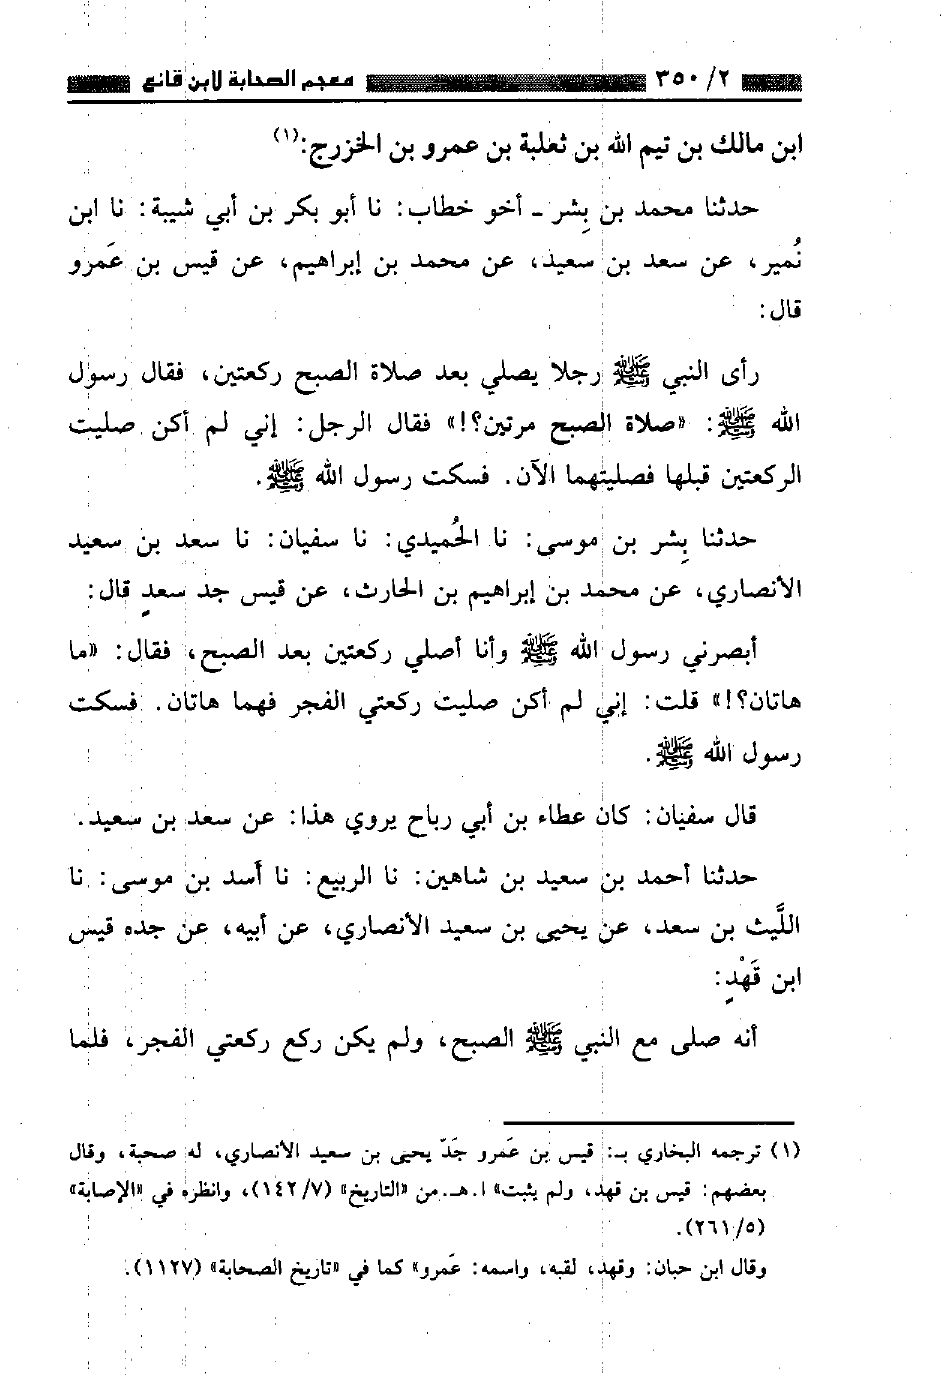 ٣٥٠/٢ معجم الصحابة لابن قانع
ابن مالك بن تيم الله بن ثعلبة بن عمرو بن الخزرج:(١)
حدثنا محمد بن بِشر ـ أخو خطاب: نا أبو بكر بن أبي شيبة: نا ابن
نُمير، عن سعد بن سعيد، عن محمد بن إبراهيم، عن قيس بن عَمرو
قال:
رأى النبي ﷺ رجلا يصلي بعد صلاة الصبح ركعتين، فقال رسول
الله ﷺ: «صلاة الصبح مرتين؟!» فقال الرجل: إني لم أكن صليت
الركعتين قبلها فصليتهما الآن. فسكت رسول الله ﷺ.
حدثنا بِشر بن موسى: نا الحُميدي: نا سفيان: نا سعد بن سعيد
الأنصاري، عن محمد بن إبراهيم بن الحارث، عن قيس جد سعدٍ قال:
أبصرني رسول الله ﷺ وأنا أصلي ركعتين بعد الصبح، فقال: «ما
هاتان؟!» قلت: إني لم أكن صليت ركعتي الفجر فهما هاتان. فسكت
رسول الله ﷺ.
قال سفيان: كان عطاء بن أبي رباح يروي هذا: عن سعد بن سعيد.
حدثنا أحمد بن سعيد بن شاهين: نا الربيع: نا أَسد بن موسى: نا
اللَّيث بن سعد، عن يحيى بن سعيد الأنصاري، عن أبيه، عن جده قيس
ابن قَهْدٍ:
أنه صلى مع النبي ﷺ الصبح، ولم يكن ركع ركعتي الفجر، فلما
(١) ترجمه البخاري بـ: قيس بن عَمرو جَدّ يحيى بن سعيد الأنصاري، له صحبة، وقال
بعضهم: قيس بن قهد، ولم يثبت» ا.هـ. من «التاريخ» (١٤٢/٧)، وانظره في «الإصابة»
(٢٦١/٥).
وقال ابن حبان: وقهد، لقبه، واسمه: عَمرو» كما في «تاريخ الصحابة» (١١٢٧).